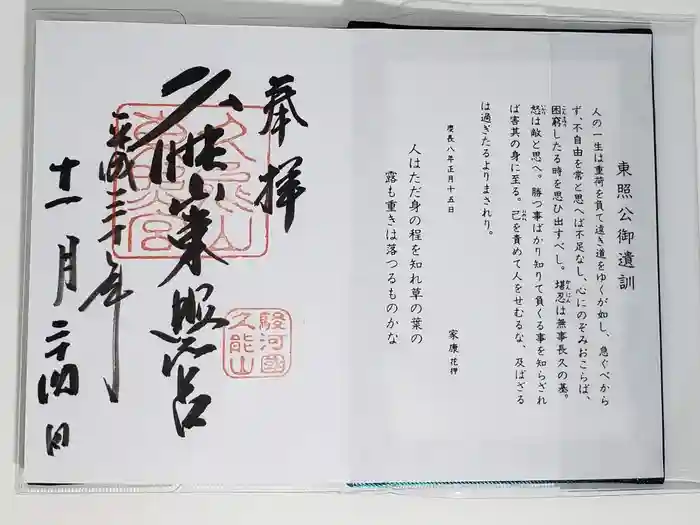 東照公御遺訓
人の一生は重荷を負て遠き道をゆくが如し、急ぐべから
ず、不自由を常と思へば不足なし、心にのぞみおこらば、
困窮したる時を思ひ出すべし。堪忍は無事長久の基。
怒は敵と思へ。勝つ事ばかり知りて負くる事を知らざれ
ば害其の身に至る。己を責めて人をせむるな、及ばざる
は過ぎたるよりまされり。
慶長八年正月十五日
家康花押
人はただ身の程を知れ草の葉の
露も重きは落つるものかな
奉拝
久能山東照宮
平成三十年
十一月二十四日
駿河國
久能山